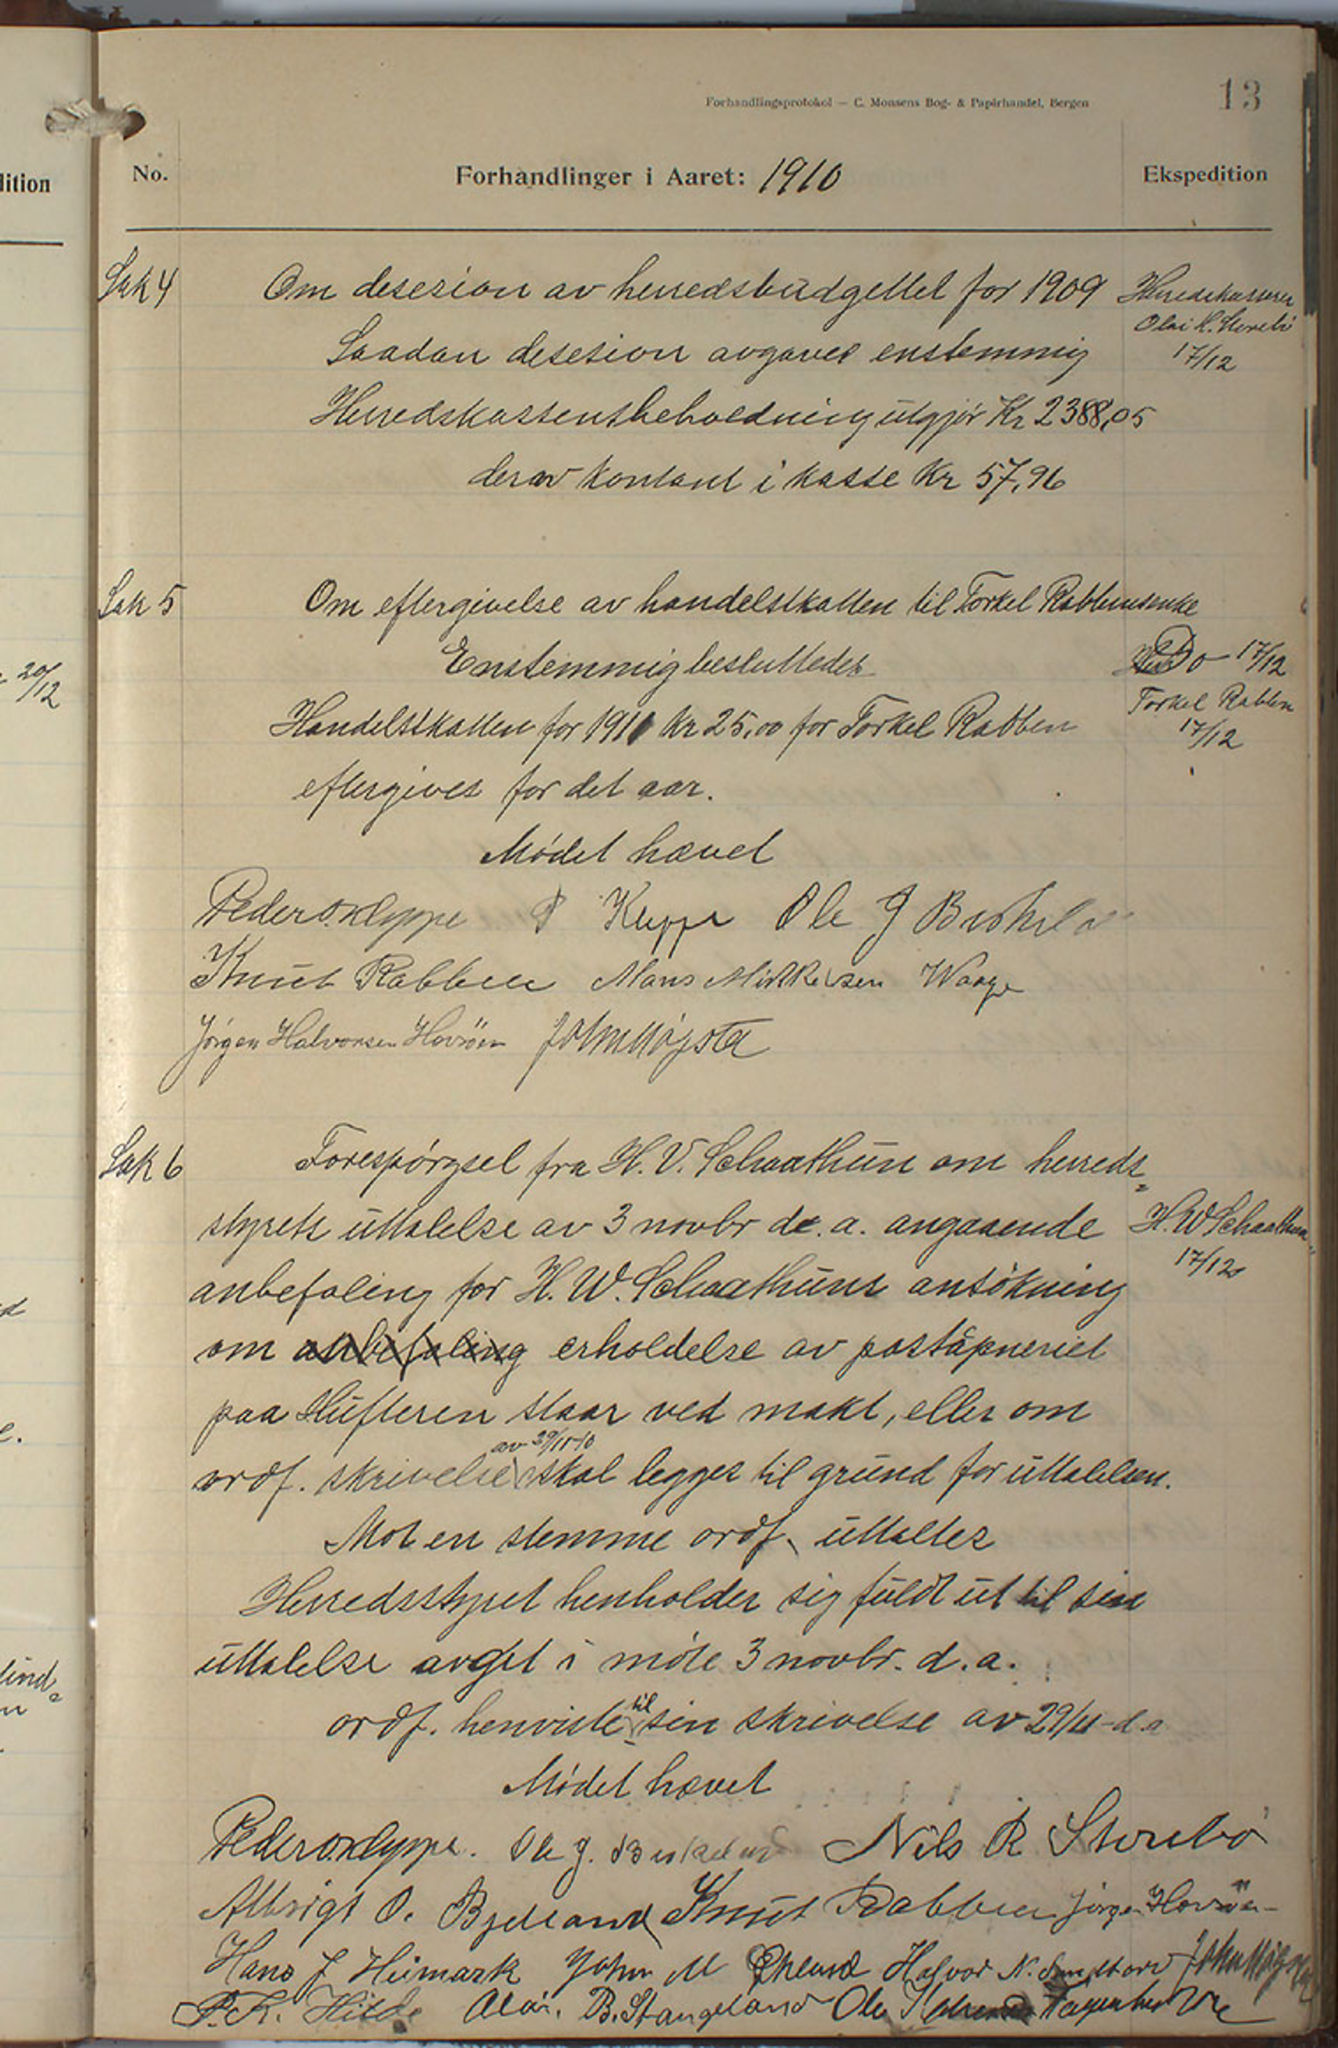 Forhandlingsprotokol – C. Monsens Bog- & Papirhandel, Bergen
13
dition
No.
Forhandlinger i Aaret: 1910
Ekspedition
Sak 4
Om desesion av herredsbudgettet for 1909
Herredskasserer
Olai K. Storebö
17/12
Saadan desesion avgaves enstemmig
Herredskassensbeholdning utgjør Kr 2388,05
derav kontant i kasse Kr 57,96
Sak 5
Om eftergivelse av handelsskatten til Torkel Rabbens enke
Enstemmig besluttedes
Do 17/12
Torkel Rabben
17/12
20/12
Handelsskatten for 1910 kr 25,00 for Torkel Rabben
eftergives for det aar.
Mødet hævet
Peder O. Kleppe P Kleppe Ole J
Knut Rabben Mons Mikkelsen Waage
Jörgen Halvorsen Horsöen John Högsta
Sak 6
Forespörgsel fra H. V. Schaathun om herreds=
styrets uttalelse av 3 novbr de. a. angaaende
H. W Schaathun
17/12
anbefaling for H. W. Schaathuns ansökning
om anbefaling erholdelse av poståpneriet
paa Hufteren staar ved makt, eller om
av 29/11-10
ordf. skrivelse skal legges til grund for uttalelsen.
Mot en stemme ordf. uttaltes
Herredsstyret henholder sig fuldt ut til sin
uttalelse avget i möte 3 novbr. d. a.
til
ordf. henviste sin skrivelse av 29/11 - d. a
Mødet hævet
Peder O. Kleppe. Ole J. Nils R Storebö
Albrigt O. Bjelland Knut Rabben Jörgen Horsöen
Hans J Heimark John M Halvor N. John Högsta
P. K. Hilde B. Stangeland Ole